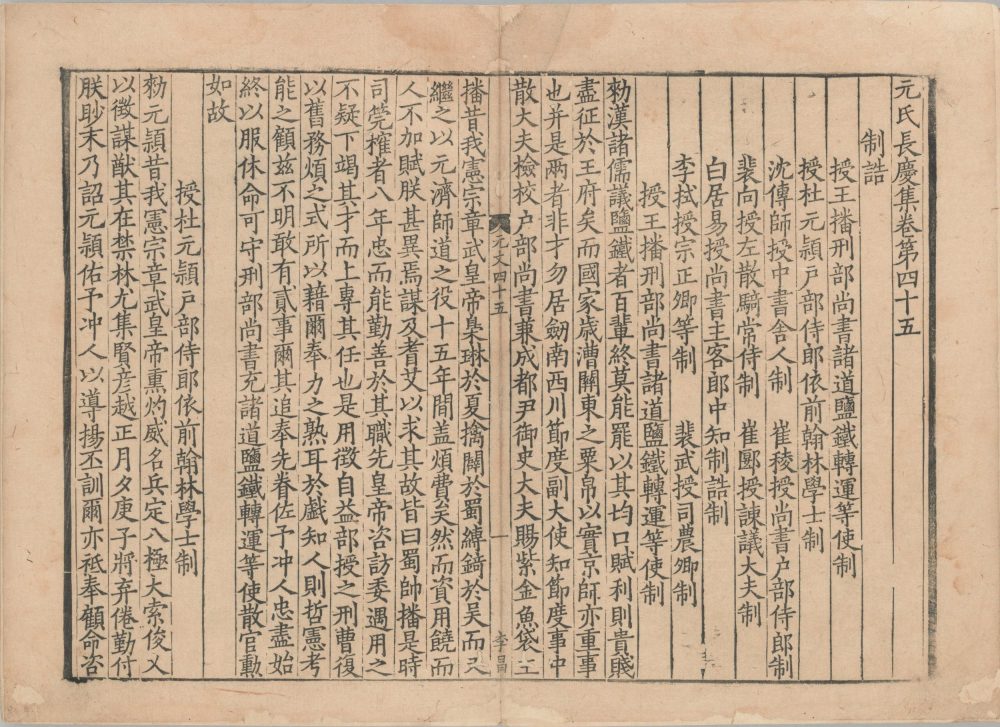 元氏長慶集卷第四十五
制誥
授王播刑部尚書諸道鹽鐵轉運等使制
授杜元頴户部侍郎依前翰林學士制
沈傳師授中書舍人制 崔稜授尚書户部侍郎制
裴向授左散騎常侍制 崔郾授諫議大夫制
白居易授尚書主客郎中知制誥制
李拭授宗正卿等制 裴武授司農卿制
授王播刑部尚書諸道鹽鐵轉運等使制
勑漢諸儒議鹽鐵者百輩終莫能罷以其均口賦利則貴賤
盡征於王府矣而國家歲漕關東之粟帛以實京師亦重事
也并是兩者非才勿居劒南西川節度副大使知節度事中
散大夫檢校户部尚書兼成都尹御史大夫賜紫金魚袋王
元文四十五
一
李昌
播昔我憲宗章武皇帝梟琳於夏擒闢於蜀縛錡於吴而又
繼之以元濟師道之役十五年間盖煩費矣然而資用饒而
人不加賦朕甚異焉謀及耆艾以求其故皆曰蜀帥播是時
司筦榷者八年忠而能勤善於其職先皇帝咨訪委遇用之
不疑下竭其才而上專其任也是用徵自益部授之刑曹復
以舊務煩之式所以藉爾奉力之熟耳於戲知人則哲憲考
能之顧兹不明敢有貳事爾其追奉先眷佐予冲人忠盡始
終以服休命可守刑部尚書充諸道鹽鐵轉運等使散官勲
如故
授杜元頴户部侍郎依前翰林學士制
勑元頴昔我憲宗章武皇帝熏灼威名兵定八極大索俊乂
以徵謀猷其在禁林尤集賢彦越正月夕庚子將弃倦勤付
朕眇末乃詔元頴佑予冲人以導揚丕訓爾亦祗奉顧命否